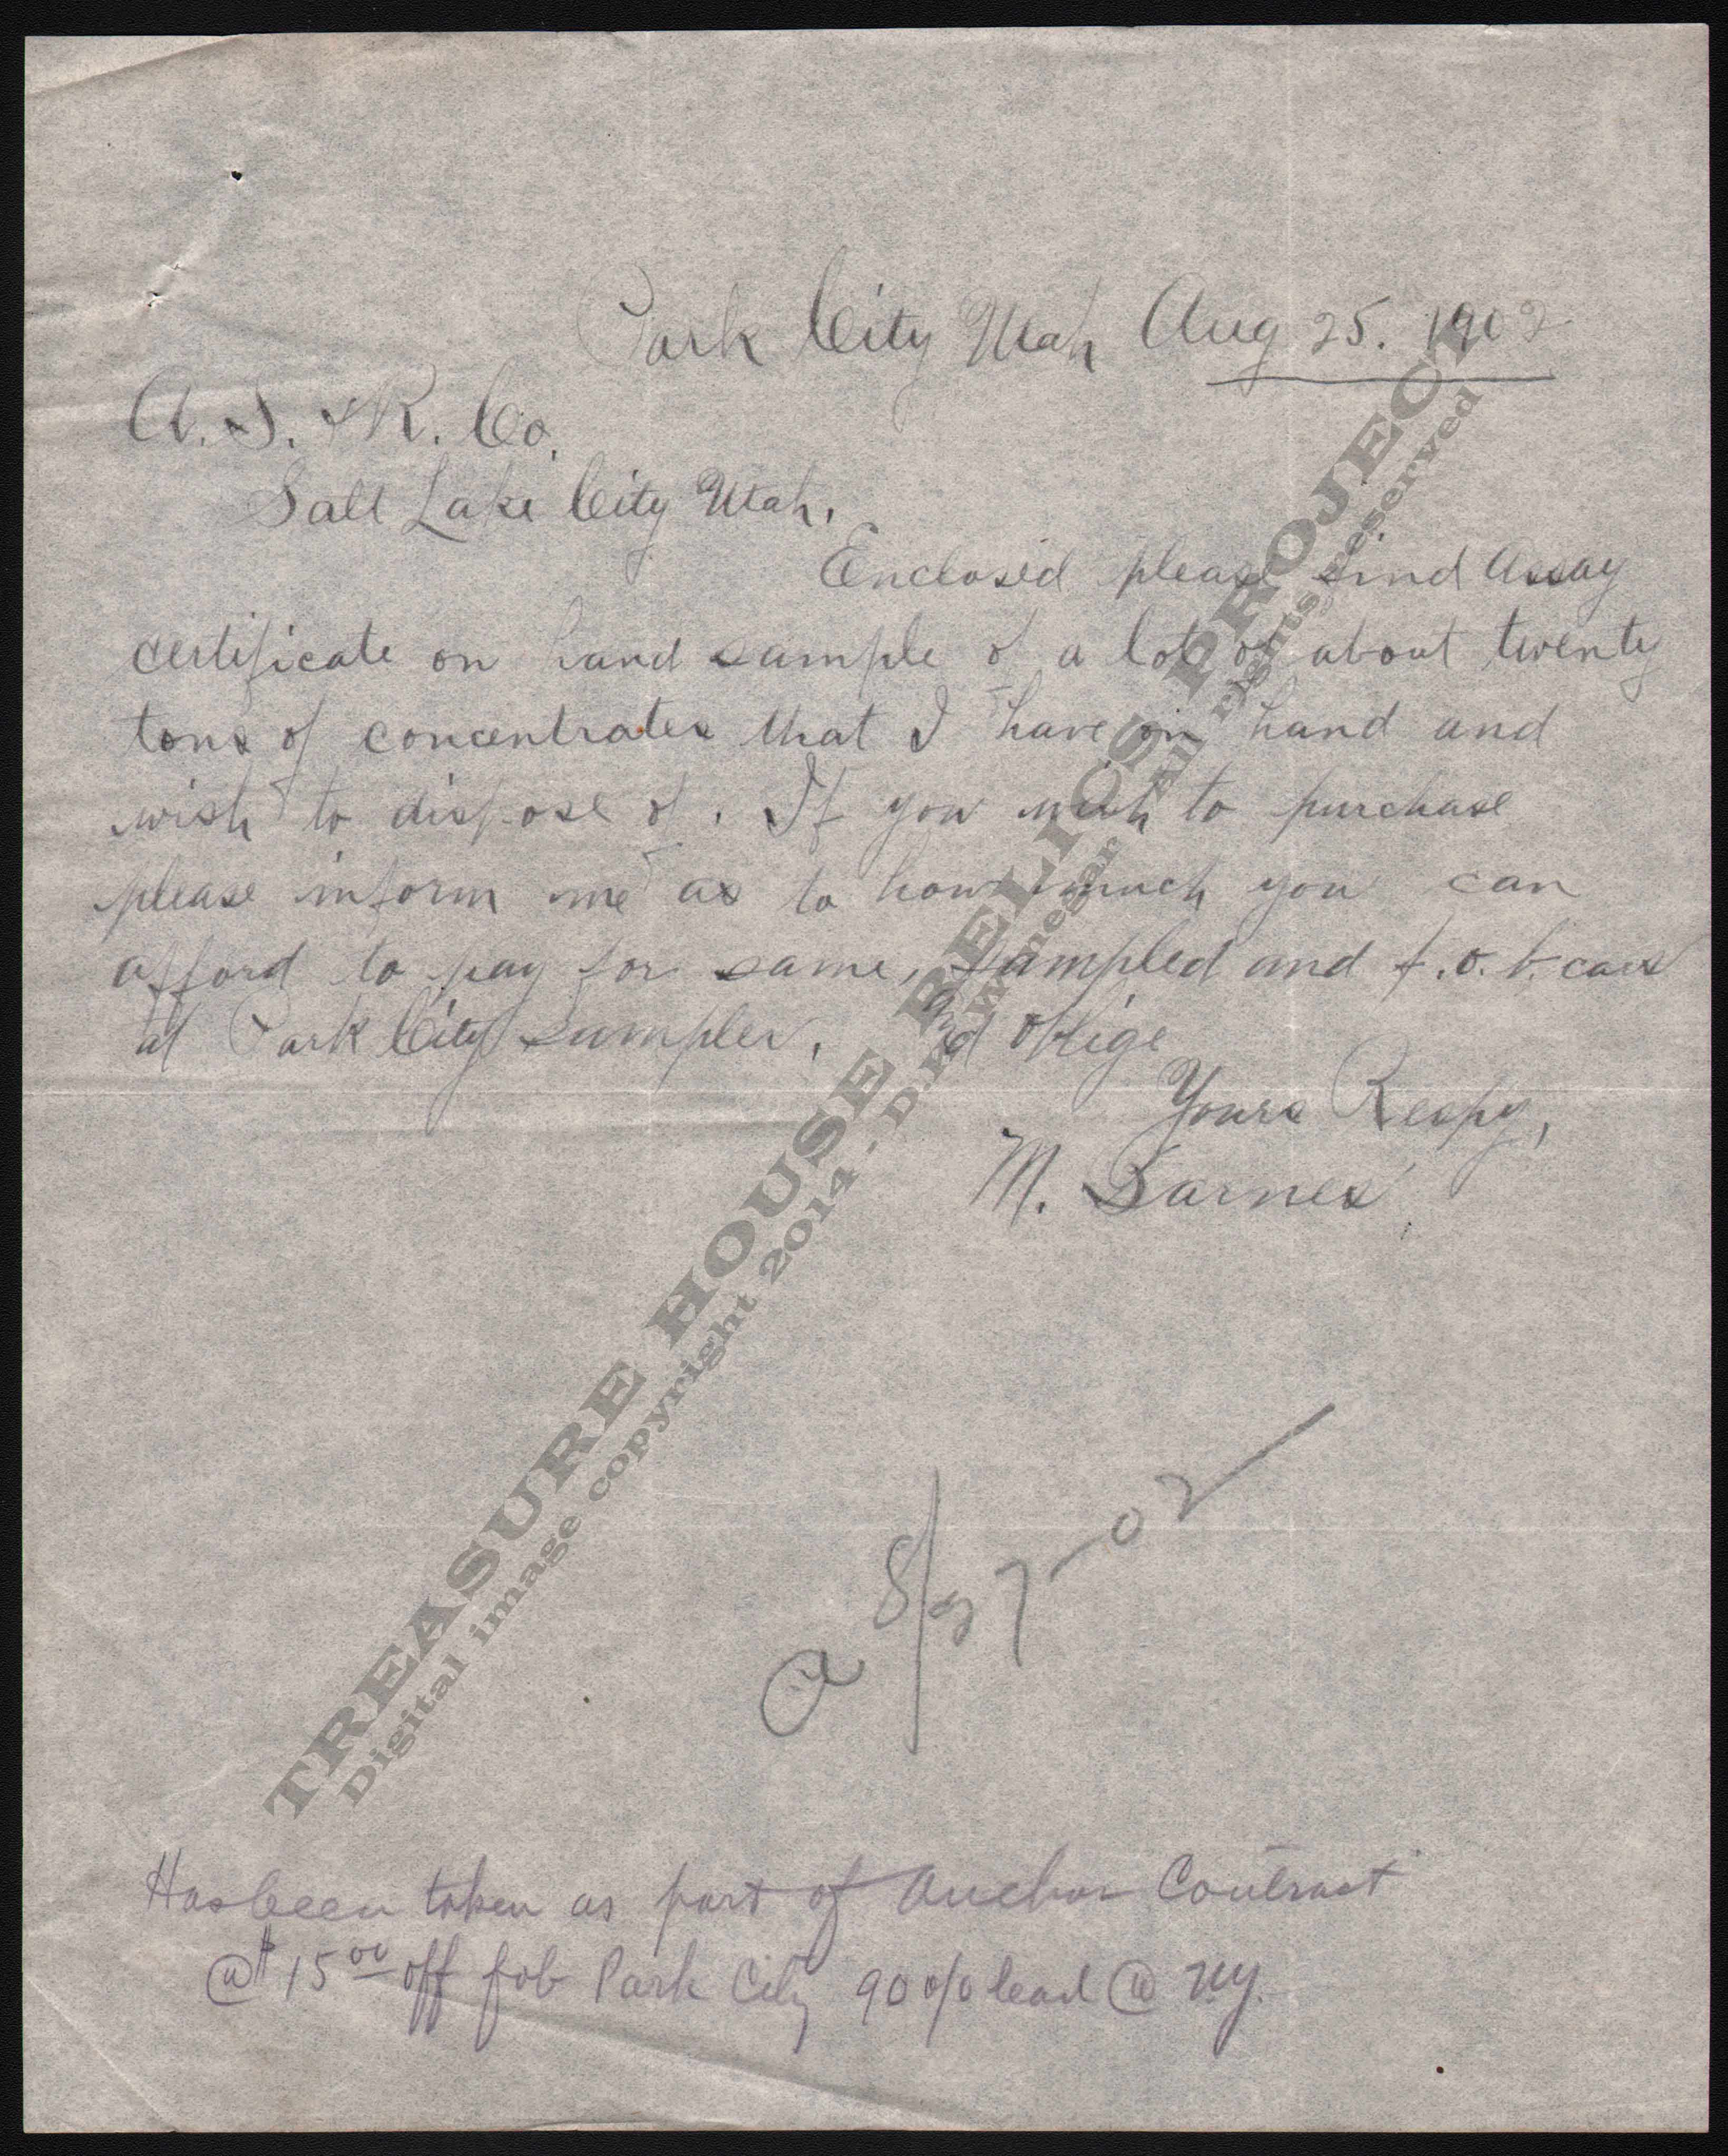 Park City Utah Aug 25. 1902
A. S. & R. Co.
Salt Lake City Utah.
Enclosed please find Assay
certificate on hand sample of a lot of about twenty
tons of concentrates that I have on hand and
wish to dispose of. If you wish to purchase
please inform me as to how much you can
afford to pay for same, sampled and f.o.b. cars
at Park City sampler, and oblige
Yours Respy,
M. Barnes
a 8/27-02
Has been taken as part of Anchor Contract
@ $15 00 off fob Park City 90 % lead @ N.Y.
TREASURE HOUSE RELICS PROJECT
Digital image copyright 2014 - D.R. Winegar All Rights Reserved